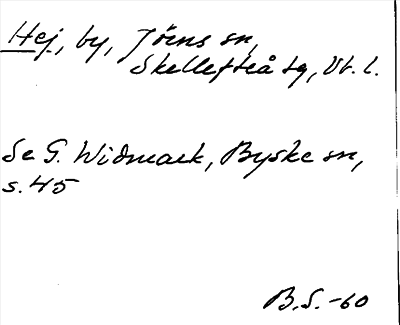 Hej, by, Jörns sn,
Skellefteå tg, Vb. l.
Se G. Widmark, Byske sn,
s. 45
B.S. -60